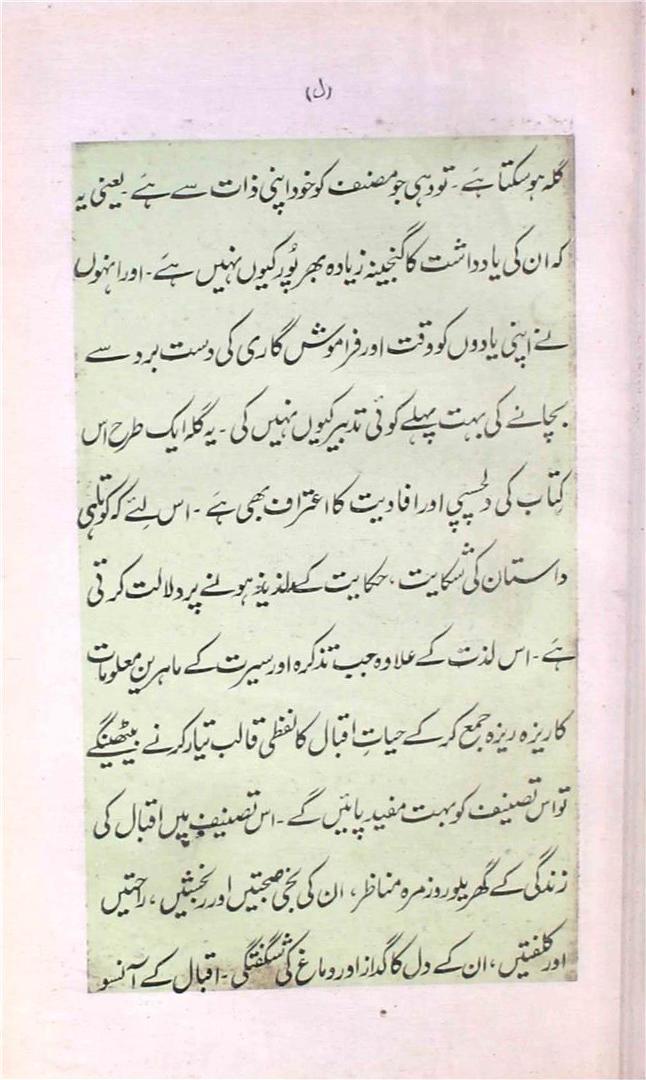 (ل)
گلہ ہو سکتا ہے ۔ تو وہی جو مصنف کو خود اپنی ذات سے ہے ۔ یعنی یہ
کہ ان کی یادداشت کا گنجینہ زیادہ بھرپُور کیوں نہیں ہے ۔ اور انہوں
نے اپنی یادوں کو وقت اور فراموش گاری کی دست برد سے
بچانے کی بہت پہلے کوئی تدبیر کیوں نہیں کی ۔ یہ گلہ ایک طرح اس
کِتاب کی دلچسپی اور افادیت کا اعتراف بھی ہے ۔ اس لِئے کہ کوتاہی
داستان کی شکایت ، حکایت کے لذیذ ہونے پر دلالت کرتی
ہے ۔ اس لذت کے علاوہ جب تذکرہ اور سیرت کے ماہرین معلومات
کا ریزہ ریزہ جمع کر کے حیاتِ اقبال کا لفظی قالب تیار کرنے بیٹھینگے
تو اس تصنیف کو بہت مفید پائیں گے ۔ اس تصنیف میں اقبال کی
زندگی کے گھریلو روزمرہ مناظر ، ان کی نجی صحبتیں اور رنجشیں ، راحتیں
اور کلفتیں ، ان کے دل کا گداز اور دماغ کی شگفتگی ۔ اقبال کے آنسو